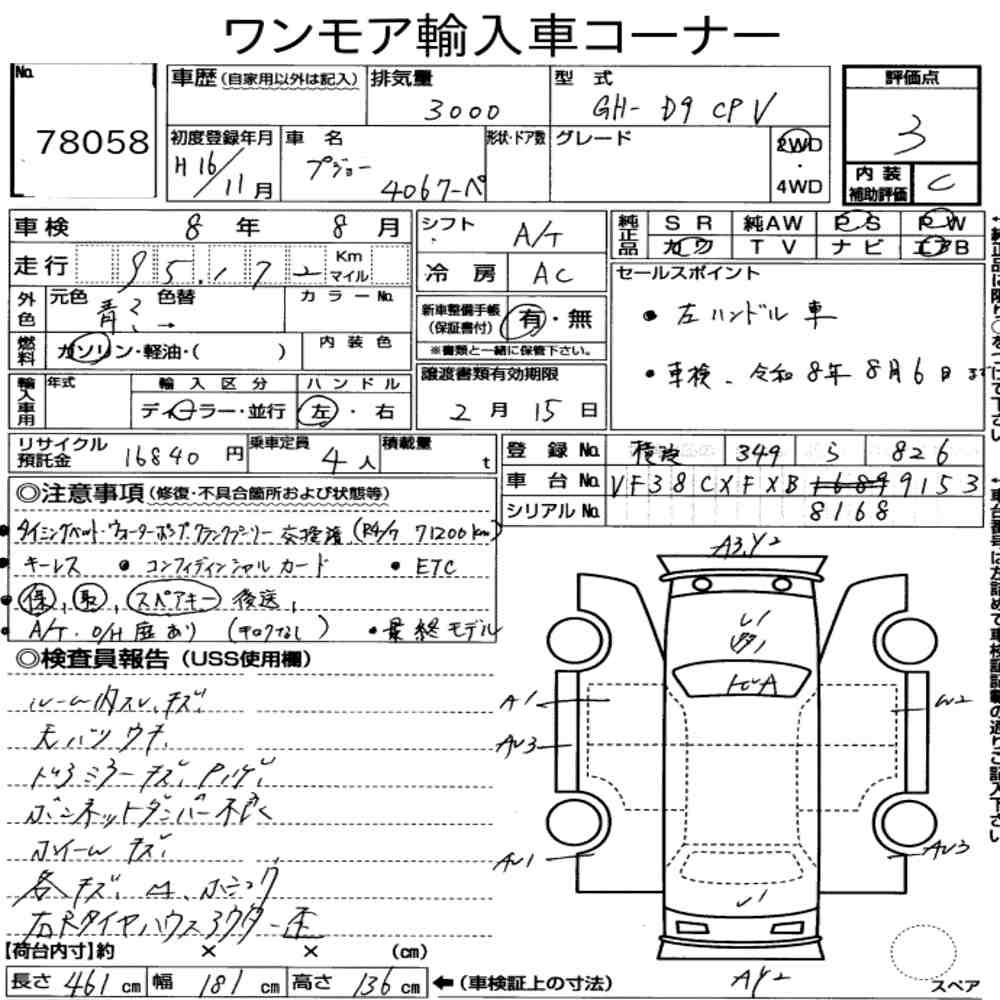 ワンモア輸入車コーナー
No. 78058
車歴 (自家用以外は記入)
排気量 3000
型式 GH- D9 CPV
評価点 3
初度登録年月 H16/11月
車名 プジョー 406クーペ
形状・ドア数
グレード
2WD・4WD
内装補助評価 C
車検 8年 8月
走行 95,172 Km マイル
シフト A/T
冷房 AC
純正品 SR 純AW PS PW
カワ TV ナビ エアB
セールスポイント
• 左ハンドル車
• 車検、令和8年8月6日まで
外色 元色 青 色替 → カラーNo.
燃料 ガソリン・軽油・( ) 内装色
新車整備手帳 (保証書付) 有・無
※書類と一緒に保管下さい。
輸入車用 年式 輸入区分 ハンドル
ディーラー・並行 左・右
譲渡書類有効期限
2月15日
リサイクル預託金 16840円
乗車定員 4人
積載量 t
登録No. 横浜 349 ら 826
車台No. VF38CXFXB 9153
シリアルNo. 8168
◎注意事項 (修復・不具合箇所および状態等)
• タイミングベルト・ウォーターポンプ クランクプーリー 交換済 (R4/7 71200km)
• キーレス • コンフィデンシャルカード • ETC
• 保、取、スペアキー 後送、
• A/T・O/H歴あり (キロクなし) • 最終モデル
◎検査員報告 (USS使用欄)
ルーム内スレ、キズ
天バリ ウキ
ドアミラーキズ、ハゲ
ボンネットダンパー不良
ホイールキズ
各キズ、凹
右Rタイヤハウス
A3,Y2
A1
W2
AU3
AU1
AU3
AY2
【荷台内寸】約 × × (cm)
長さ 461 cm 幅 181 cm 高さ 136 cm ←(車検証上の寸法)
スペア